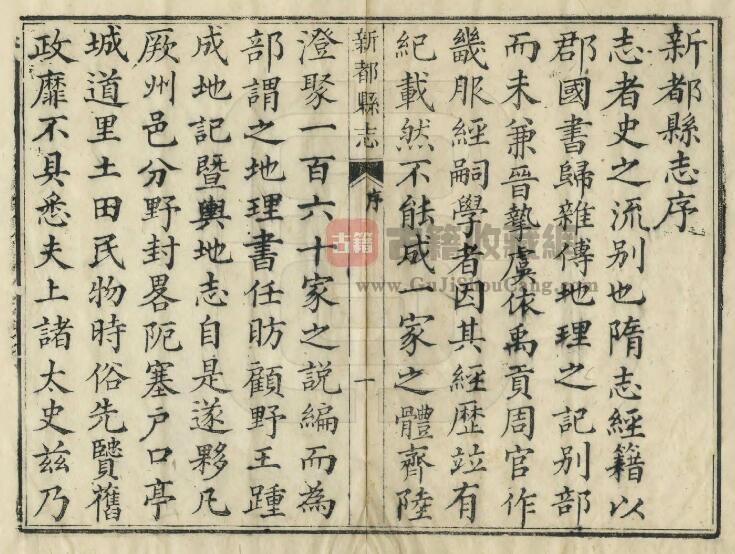 新都縣志序
志者史之流别也隋志經籍以
郡國書歸雜傳地理之記别部
而未兼晉摯虞依禹貢周官作
畿服經嗣學者因其經歷竝有
紀載然不能成一家之體齊陸
新都縣志
序
一
澄聚一百六十家之說編而為
部謂之地理書任昉顧野王踵
成地記暨輿地志自是遂夥凡
厥州邑分野封畧阨塞戸口亭
城道里土田民物時俗先賢舊
政靡不具悉夫上諸太史茲乃
古籍
古籍收藏網
www.GuJiShouCang.com